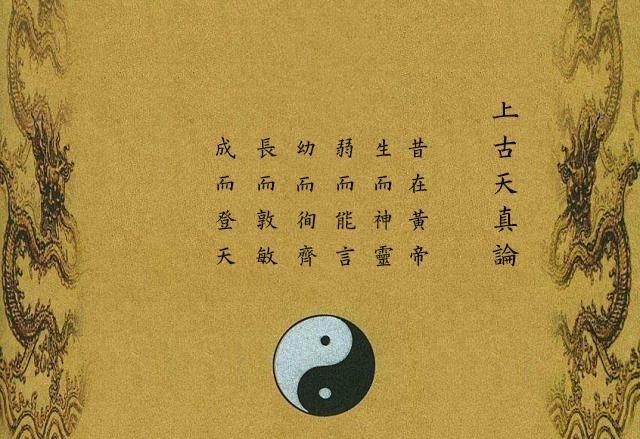 上古天真論
昔在黃帝
生而神靈
弱而能言
幼而徇齊
長而敦敏
成而登天